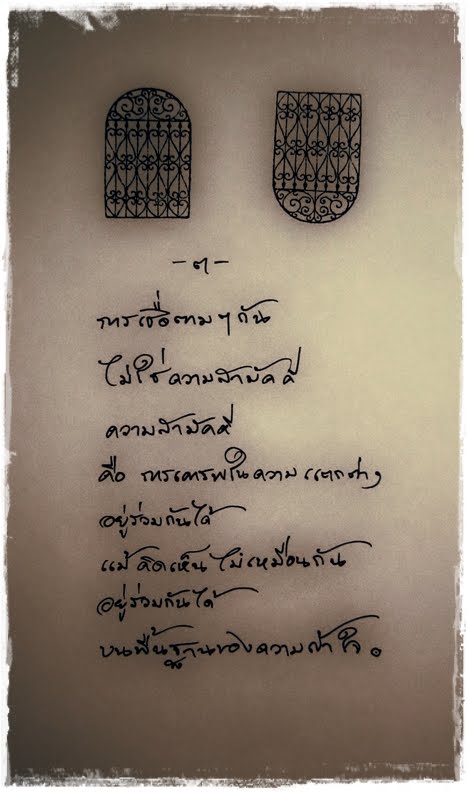 -๓-
การเชื่อตามๆกัน
ไม่ใช่ความสามัคคี
ความสามัคคี
คือ การเคารพในความแตกต่าง
อยู่ร่วมกันได้
แม้คิดเห็นไม่เหมือนกัน
อยู่ร่วมกันได้
บนพื้นฐานของความเข้าใจ